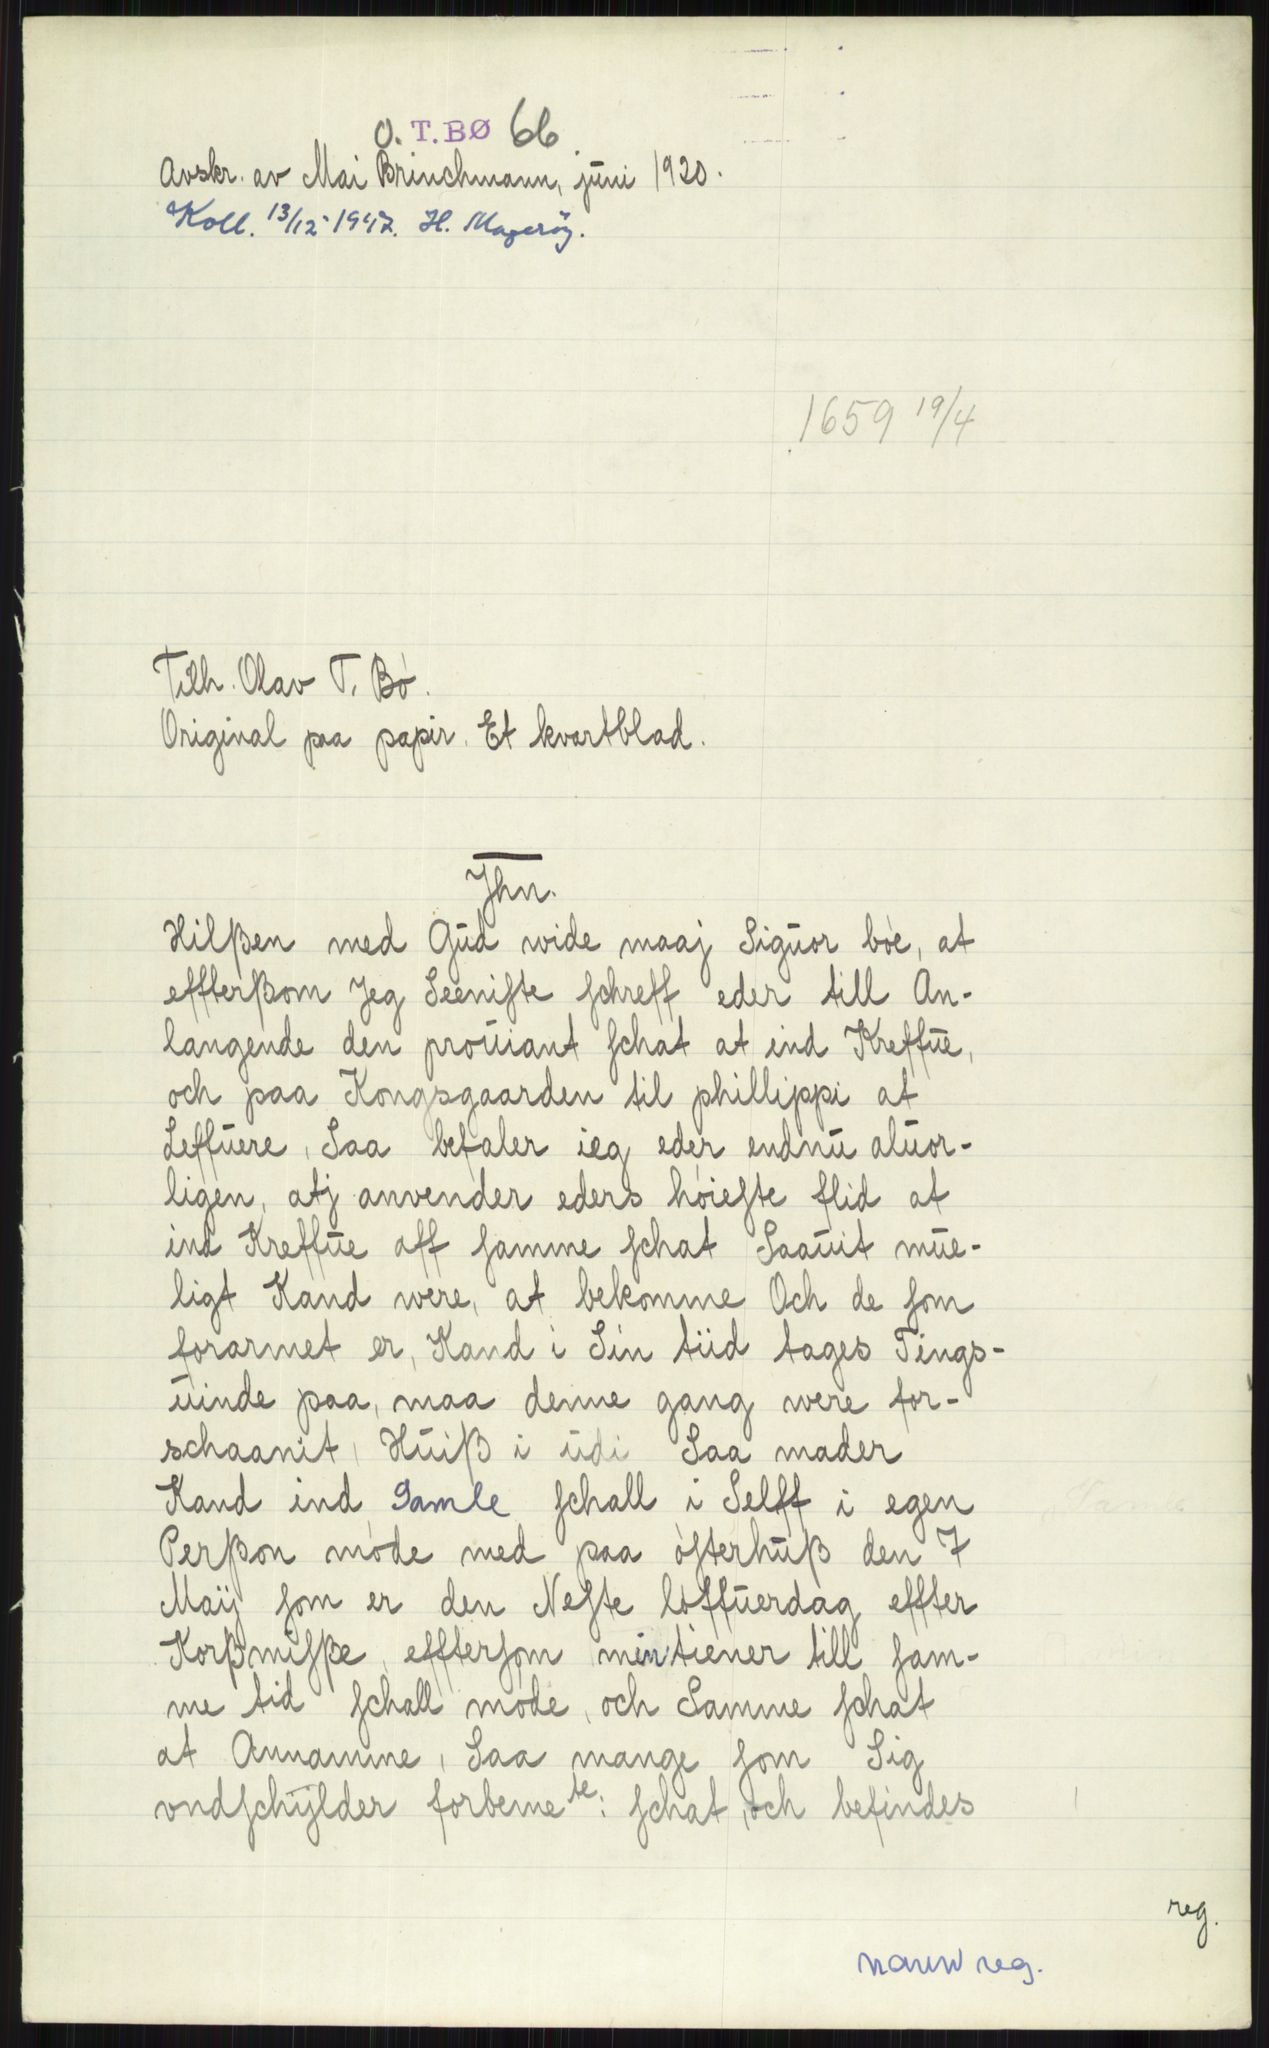 O. T.BØ 66
Avskr. av Mai Brinchmann, juni 1920.
Koll. 13/12 1947. H. Magerøy.
1659 19/4
Tilh. Olav T. Bø.
Original paa papir. Et kvartblad.
Jhn.
Hilßen med Gŭd wide maaj Sigŭor bøe, at
effterßom Jeg Seeniſte ſchreff eder till An-
langende den proŭiant ſchat at ind Kreffŭe,
och paa Kongsgaarden til phillippi at
Leffŭere, Saa befaler ieg eder endnŭ alŭor-
ligen, atj anvender eders høieſte flid at
ind Kreffŭe aff ſamme ſchat Saaŭit mŭe-
ligt Kand were, at bekomme Och de ſom
forarmet er, Kand i Sin tiid tages Tings-
ŭinde paa, maa denne gang were for-
schaanit, Hŭiß i ŭdi Saa mader
Kand ind Samle ſchall i Selff i egen
Perßon møde med paa øſterhŭß den 7
Maij ſom er den Neſte løffŭerdag effter
Korßmiſße, effterſom min tiener till ſam-
me tid ſchall møde, och Samme ſchat
at Annamme, Saa mange ſom Sig
vndſchÿlder forbemete: ſchat, och befindes
reg.
reg.